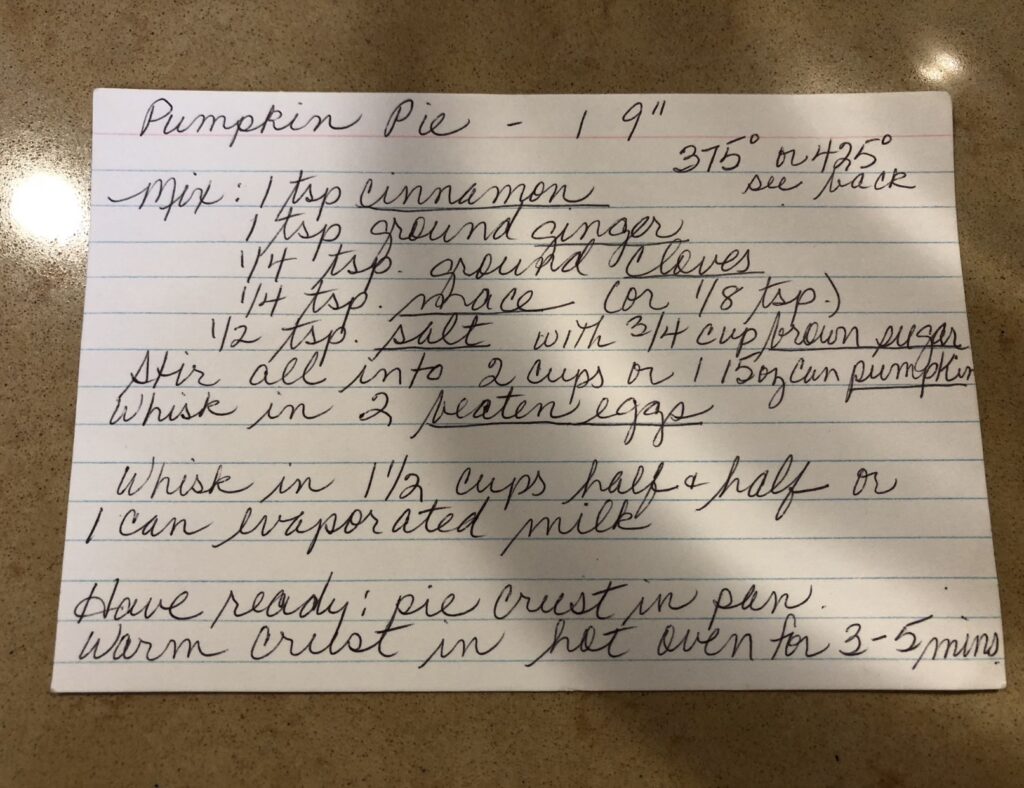 Pumpkin Pie - 1 9"
375° or 425°
see back
Mix: 1 tsp cinnamon
1 tsp ground ginger
1/4 tsp. ground cloves
1/4 tsp. mace (or 1/8 tsp.)
1/2 tsp. salt with 3/4 cup brown sugar
Stir all into 2 cups or 1 15oz can pumpkin
Whisk in 2 beaten eggs
Whisk in 1 1/2 cups half & half or
1 can evaporated milk
Have ready: pie crust in pan.
Warm crust in hot oven for 3-5 mins.